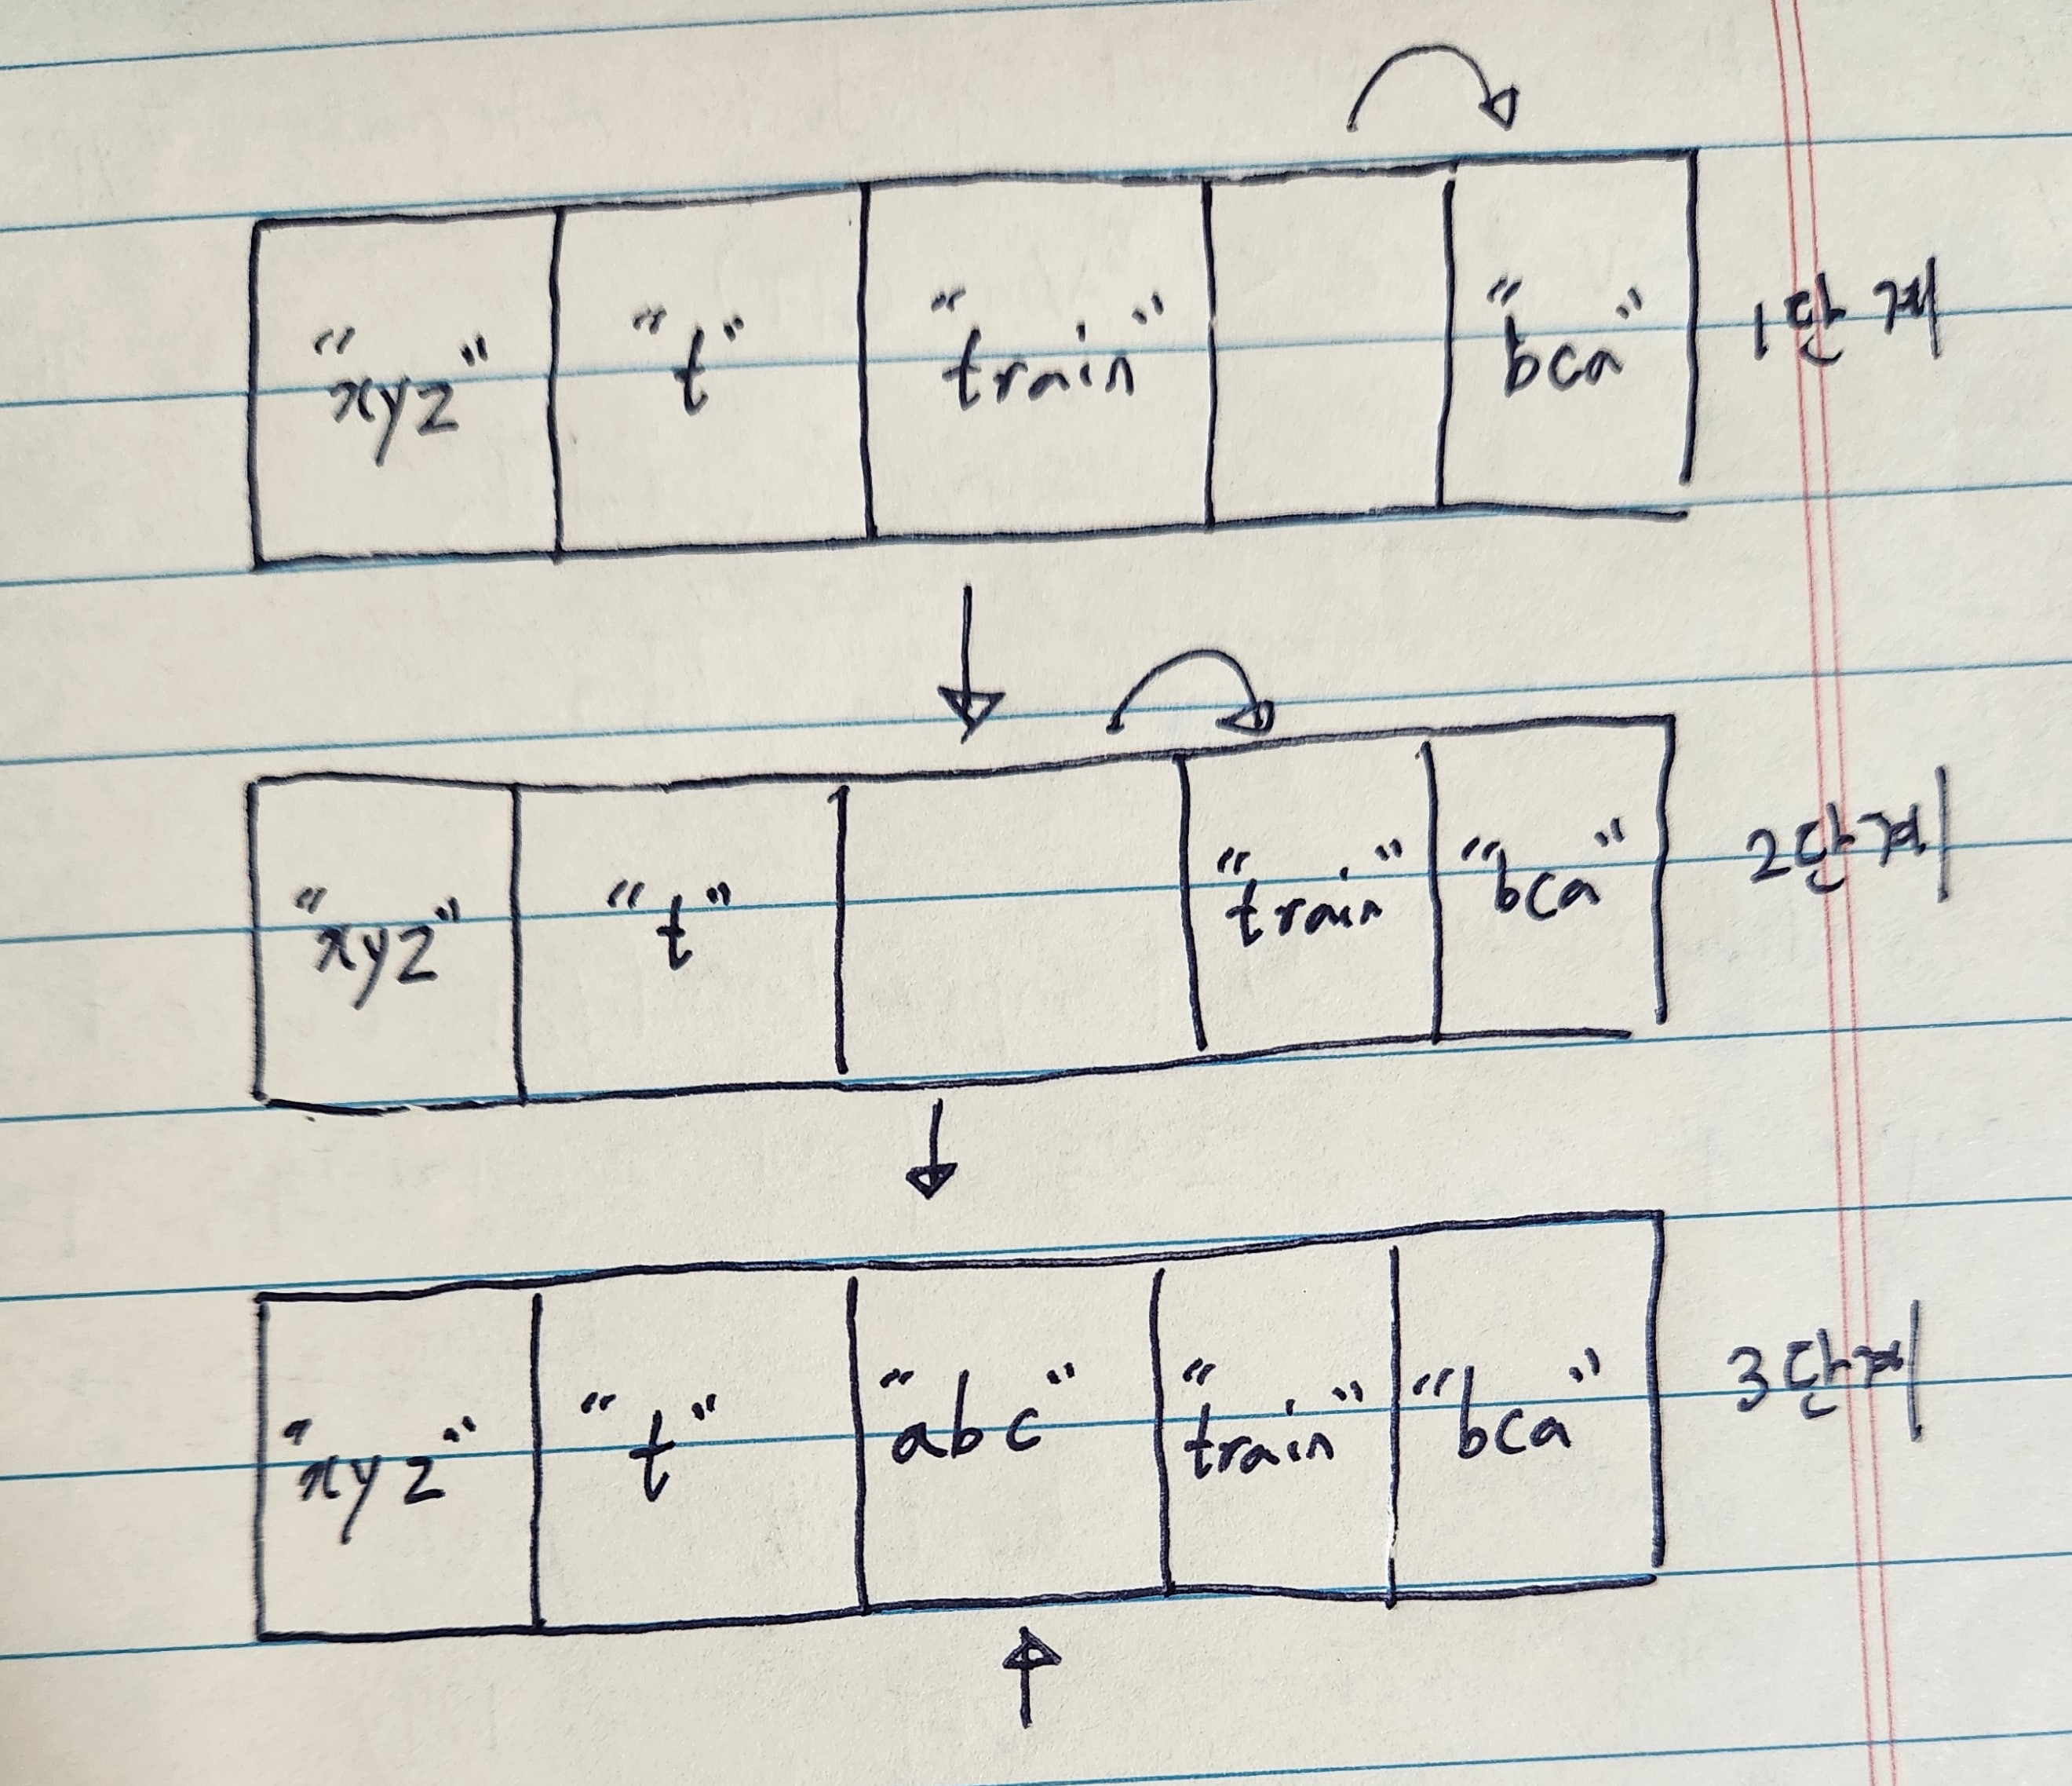 "xyz" "t" "train" "bca" 1단계
"xyz" "t" "train" "bca" 2단계
"xyz" "t" "abc" "train" "bca" 3단계